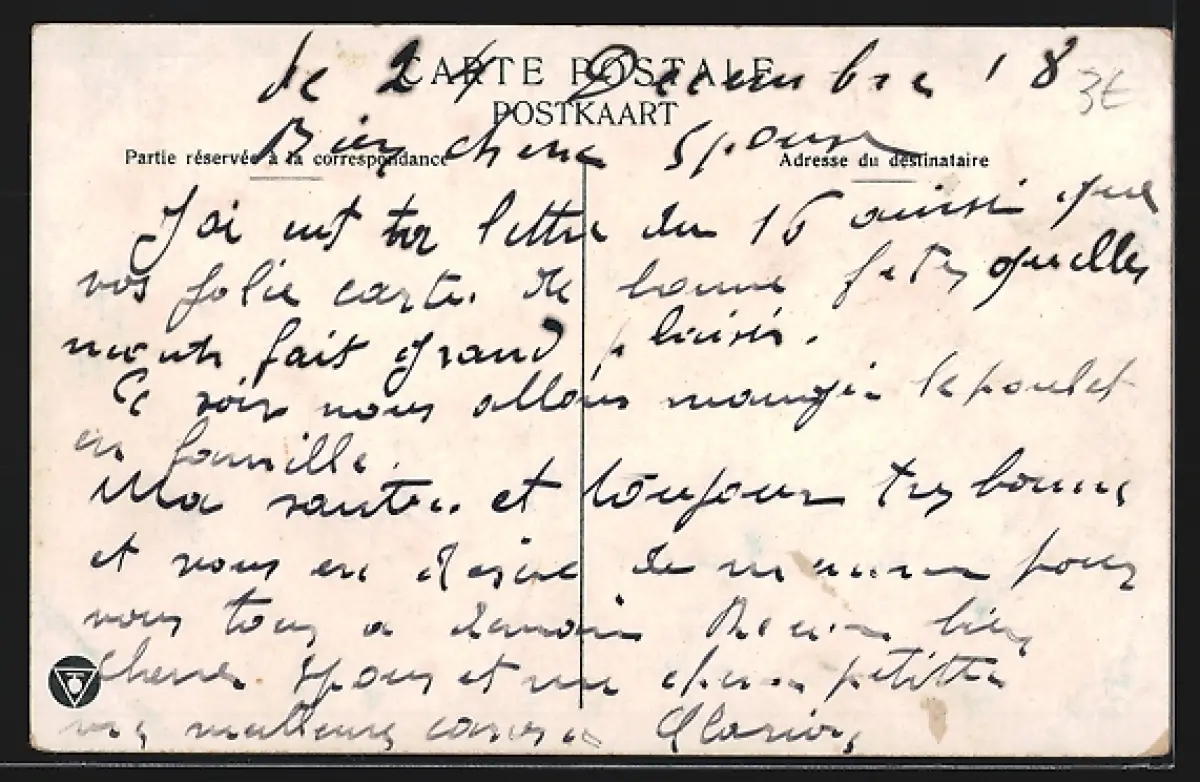 CARTE POSTALE
POSTKAART
Partie réservée à la correspondance
Adresse du destinataire
le 24 Decembre 18
3€
Bien chere Epouse
J'ai eut ta lettre du 16 ainsi que
vos jolie carte. de bonne fetes quelles
mont fait grand plaisir.
Ce soir nous allons manger le poulet
en famille.
Ma sante. et toujour tres bonne
et vous en desire de meme pour
vous tous a demain Recevez bien
chere Epous et ma chere petite
mes meilleurs caresses